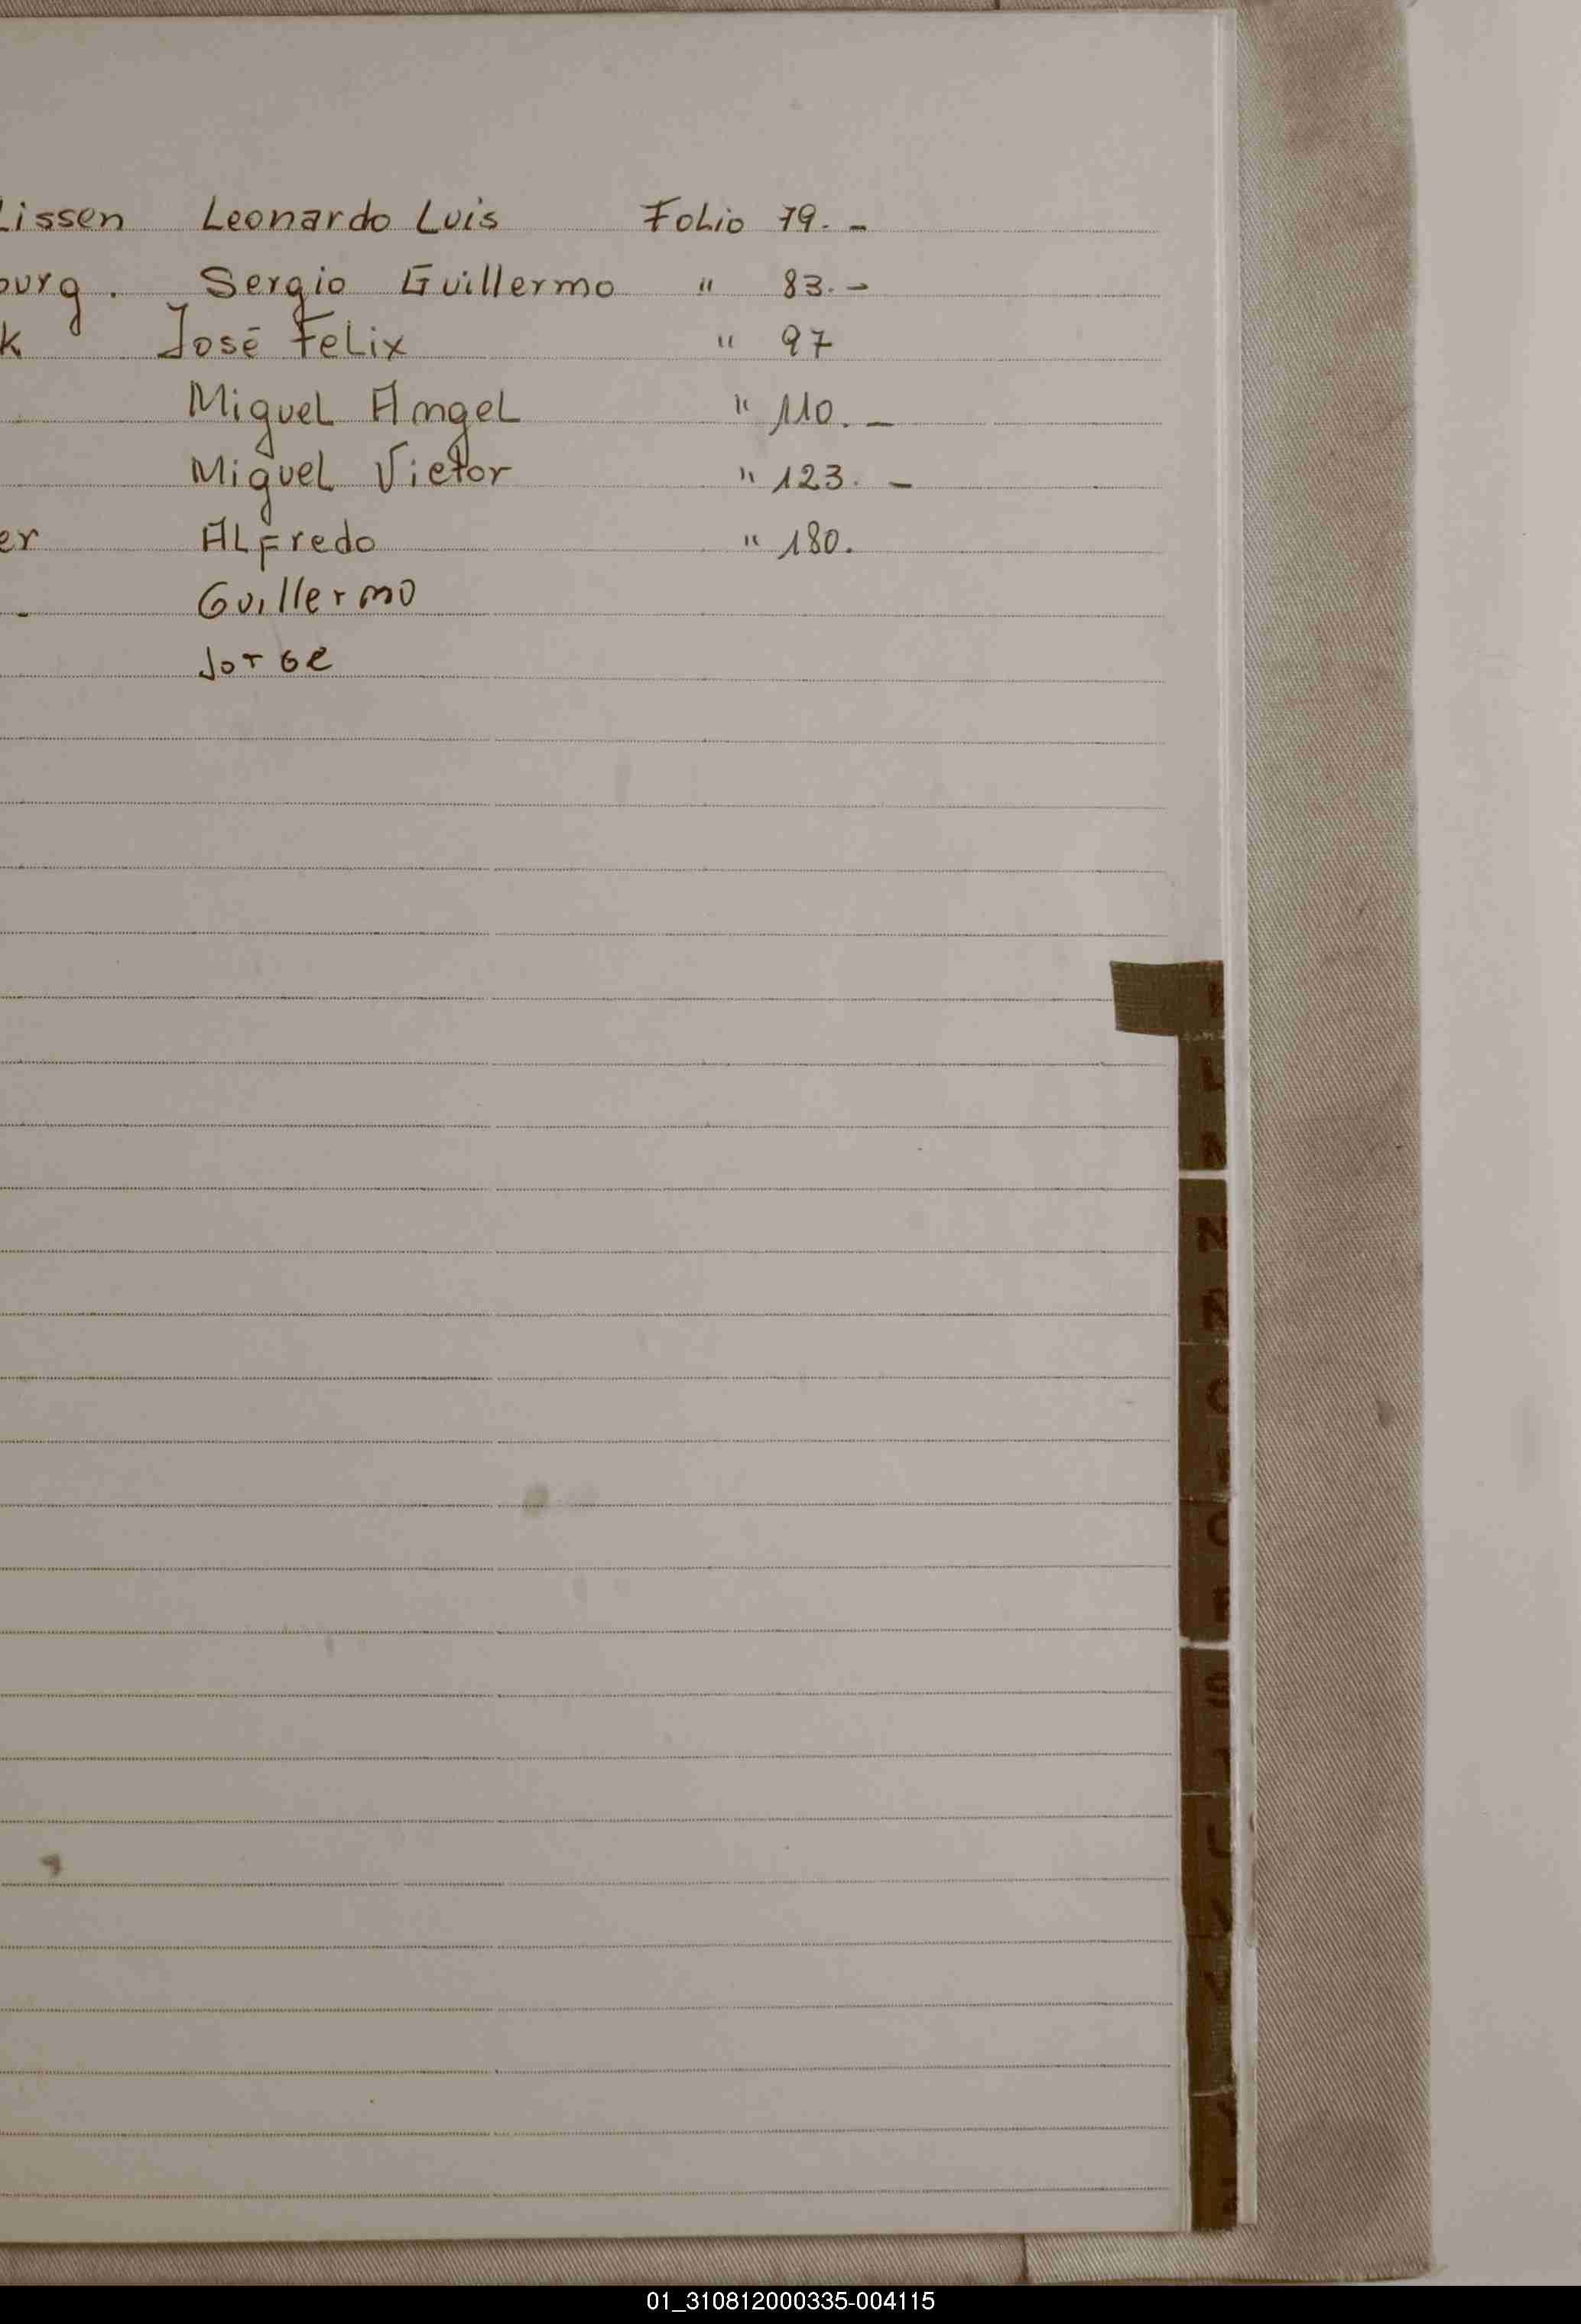 Lissen Leonardo Luis Folio 79.-
ourg. Sergio Guillermo " 83.-
k José Felix " 97
Miguel Angel " 110.-
Miguel Victor " 123.-
er ALfredo " 180.
Guillermo
Jorge
L
N
01_310812000335-004115